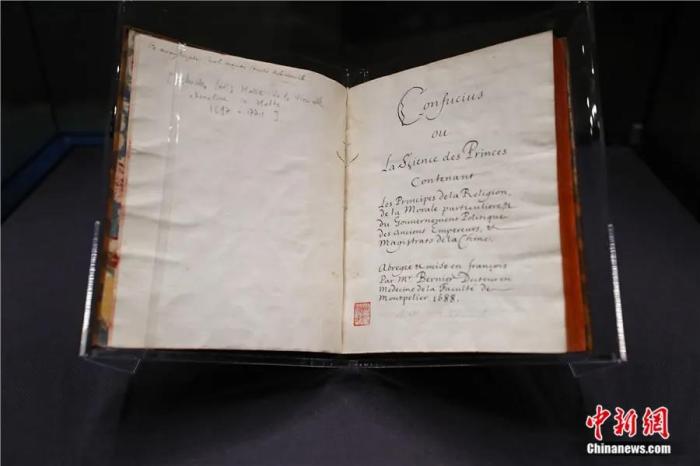 1697 - 1771 ]
Confucius
ou
La Science des Princes
Contenant
Les Principes de la Religion,
de la Morale particuliere, &
du Gouvernement Politique
des anciens Empereurs, &
Magistrats de la Chine.
Abregée & mise en françois
Par Mr. Bernier Docteur en
Medecine de la Faculté de
Montpelier. 1688.
中新网
WWW.CHINANEWS.COM